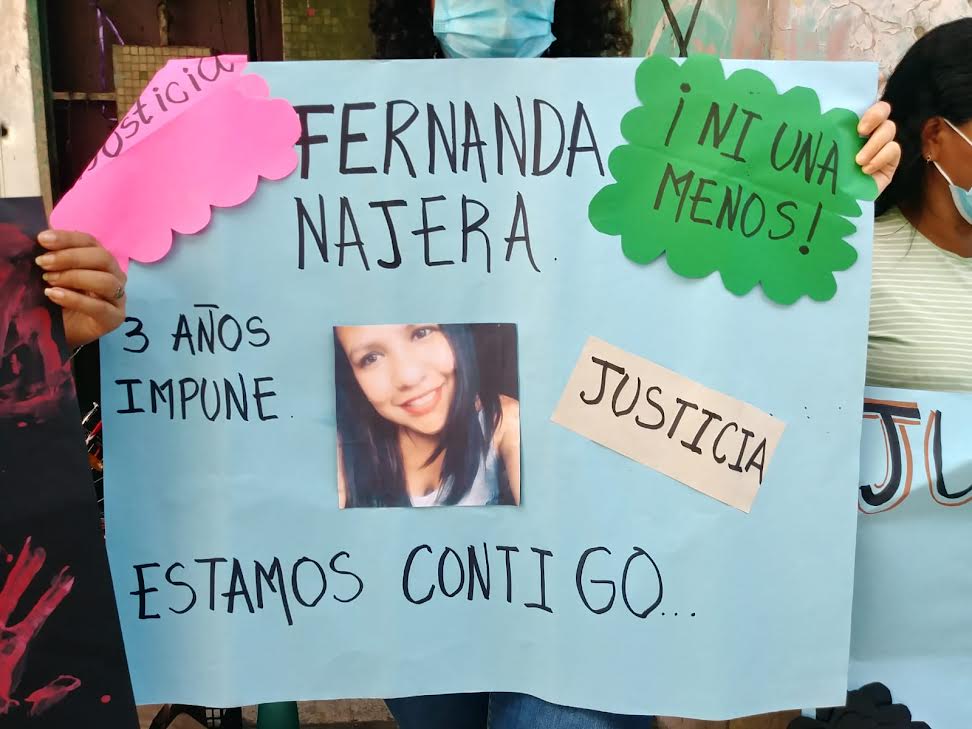 Justicia
FERNANDA
NAJERA.
¡NI UNA
MENOS!
3 AÑOS
IMPUNE.
JUSTICIA
ESTAMOS CONTIGO...
JU